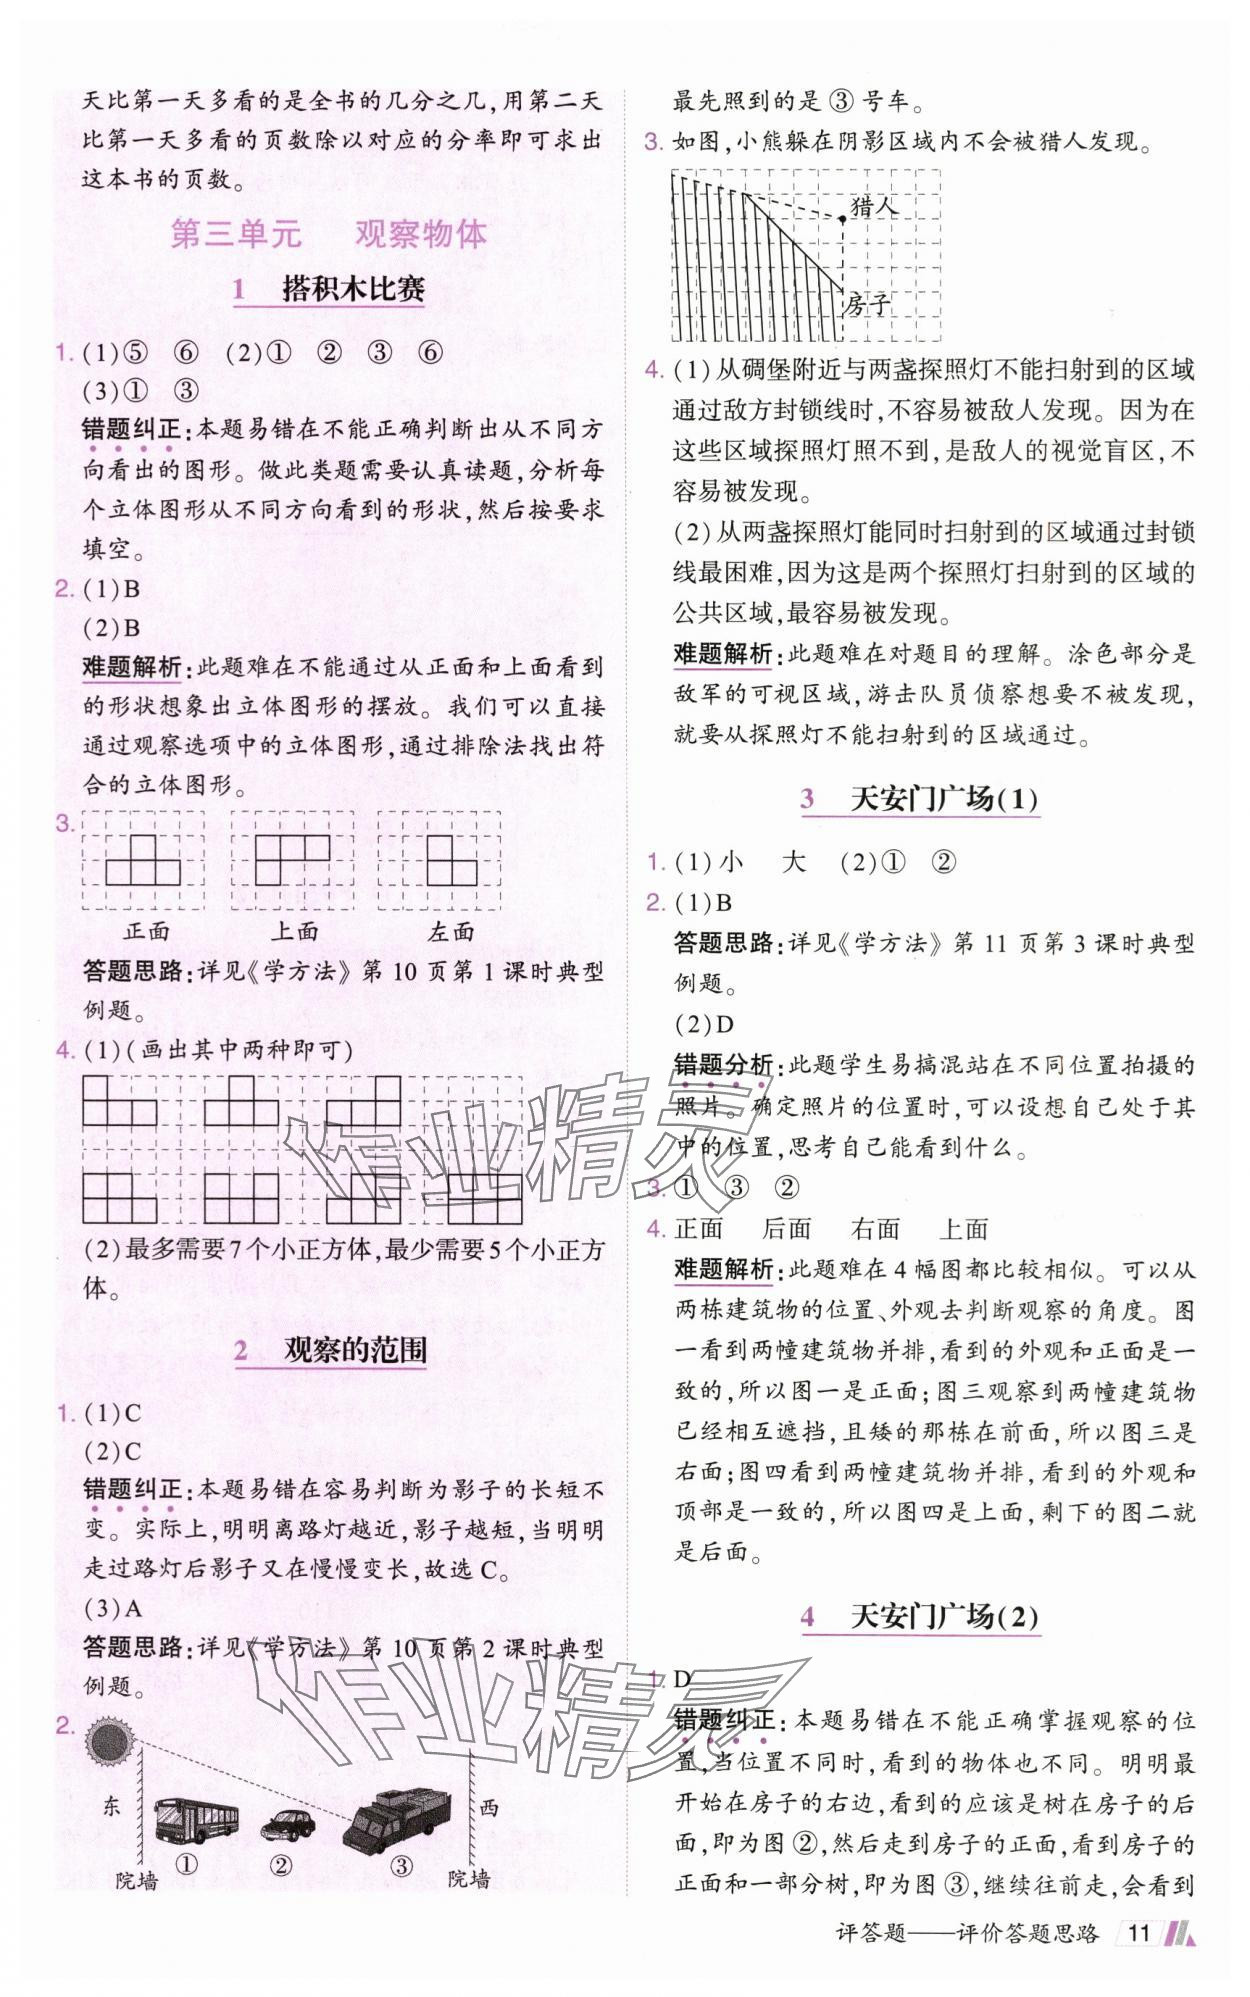 天比第一天多看的是全书的几分之几,用第二天
比第一天多看的页数除以对应的分率即可求出
这本书的页数。
第三单元 观察物体
1 搭积木比赛
1. (1)⑤ ⑥ (2)① ② ③ ⑥
(3)① ③
错题纠正:本题易错在不能正确判断出从不同方
向看出的图形。做此类题需要认真读题,分析每
个立体图形从不同方向看到的形状,然后按要求
填空。
2. (1)B
(2)B
难题解析:此题难在不能通过从正面和上面看到
的形状想象出立体图形的摆放。我们可以直接
通过观察选项中的立体图形,通过排除法找出符
合的立体图形。
3.
正面 上面 左面
答题思路:详见《学方法》第10页第1课时典型
例题。
4. (1)(画出其中两种即可)
(2)最多需要7个小正方体,最少需要5个小正方
体。
2 观察的范围
1. (1)C
(2)C
错题纠正:本题易错在容易判断为影子的长短不
变。实际上,明明离路灯越近,影子越短,当明明
走过路灯后影子又在慢慢变长,故选C。
(3)A
答题思路:详见《学方法》第10页第2课时典型
例题。
2.
东 西
① ② ③
院墙 院墙
最先照到的是③号车。
3. 如图,小熊躲在阴影区域内不会被猎人发现。
猎人
房子
4. (1)从碉堡附近与两盏探照灯不能扫射到的区域
通过敌方封锁线时,不容易被敌人发现。因为在
这些区域探照灯照不到,是敌人的视觉盲区,不
容易被发现。
(2)从两盏探照灯能同时扫射到的区域通过封锁
线最困难,因为这是两个探照灯扫射到的区域的
公共区域,最容易被发现。
难题解析:此题难在对题目的理解。涂色部分是
敌军的可视区域,游击队员侦察想要不被发现,
就要从探照灯不能扫射到的区域通过。
3 天安门广场(1)
1. (1)小 大 (2)① ②
2. (1)B
答题思路:详见《学方法》第11页第3课时典型
例题。
(2)D
错题分析:此题学生易搞混站在不同位置拍摄的
照片。确定照片的位置时,可以设想自己处于其
中的位置,思考自己能看到什么。
3. ① ③ ②
4. 正面 后面 右面 上面
难题解析:此题难在4幅图都比较相似。可以从
两栋建筑物的位置、外观去判断观察的角度。图
一看到两幢建筑物并排,看到的外观和正面是一
致的,所以图一是正面;图三观察到两幢建筑物
已经相互遮挡,且矮的那栋在前面,所以图三是
右面;图四看到两幢建筑物并排,看到的外观和
顶部是一致的,所以图四是上面,剩下的图二就
是后面。
4 天安门广场(2)
1. D
错题纠正:本题易错在不能正确掌握观察的位
置,当位置不同时,看到的物体也不同。明明最
开始在房子的右边,看到的应该是树在房子的后
面,即为图②,然后走到房子的正面,看到房子的
正面和一部分树,即为图③,继续往前走,会看到
评答题——评价答题思路 11
作业精灵
作业精灵